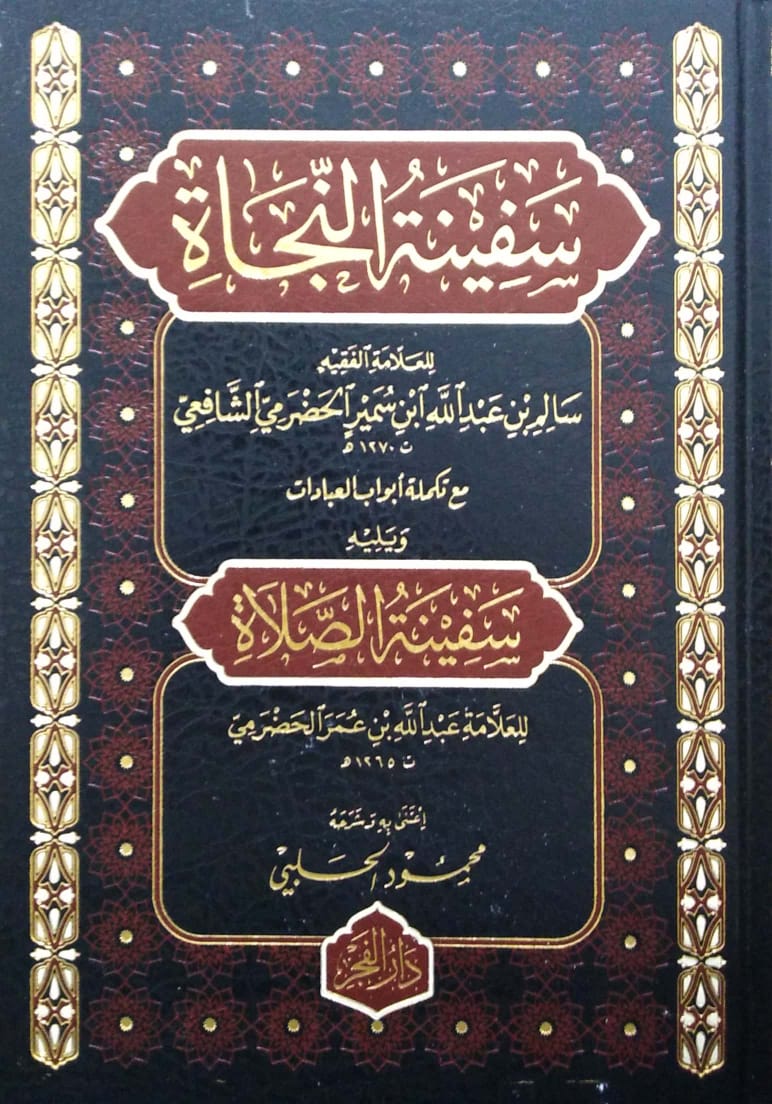 سَفِينَةُ النَّجَاةِ
لِلعَلَّامَةِ الفَقِيهِ
سَالِمِ بْنِ عَبْدِ اللَّهِ ابْنِ سُمَيْرٍ الحَضْرَمِيِّ الشَّافِعِيِّ
ت ١٢٧٠ هـ
مع تكملة أبواب العبادات
وَيَلِيْهِ
سَفِيْنَةُ الصَّلَاةِ
لِلعَلَّامَةِ عَبْدِ اللَّهِ بْنِ عُمَرَ الحَضْرَمِيِّ
ت ١٢٦٥ هـ
اِعْتَنَى بِهِ وَشَرَحَهُ
محمُود الحلَبيّ
دَارُ الفَجْرِ